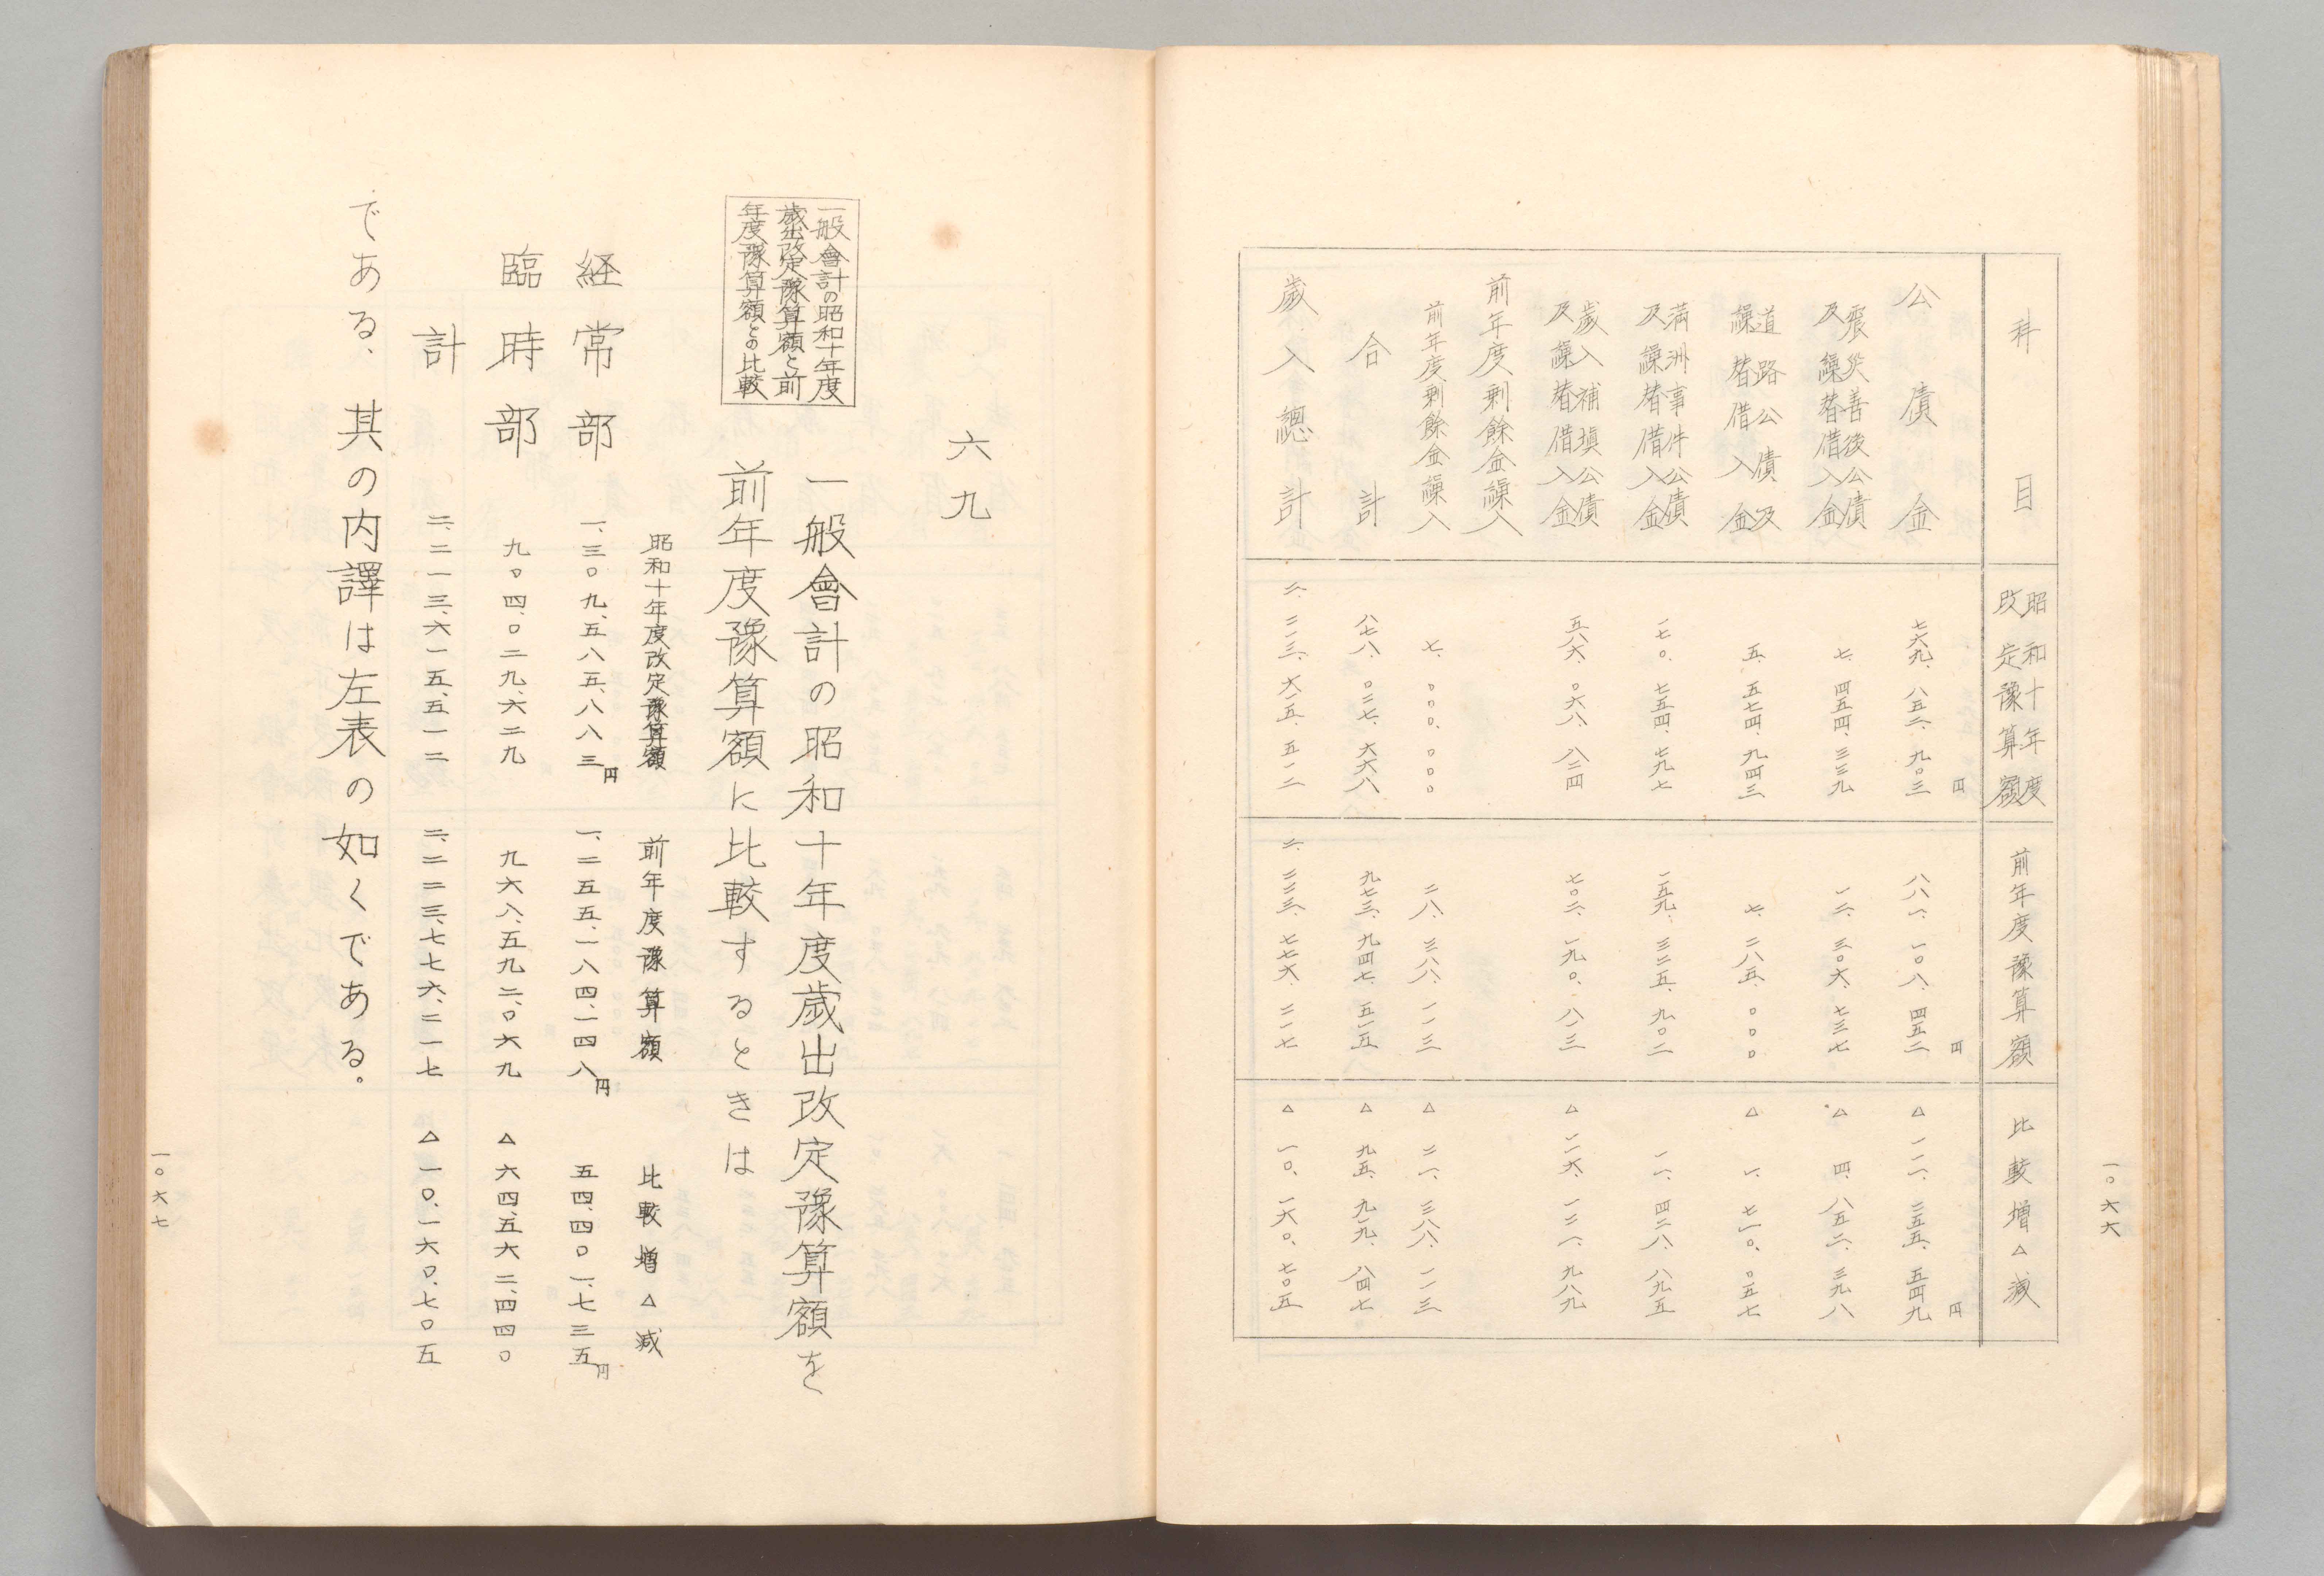 一〇六六
科目 昭和十年度改定豫算額 前年度豫算額 比較増△減
円 円 円
公債金 七六九、八五二、九〇三 八八一、一〇八、四五二 △一一一、二五五、五四九
震災善後公債及繰替借入金 七、四五四、三三九 一二、三〇六、七三七 △四、八五二、三九八
道路公債及繰替借入金 五、五七四、九四三 七、二八五、〇〇〇 △一、七一〇、〇五七
満洲事件公債及繰替借入金 一七〇、七五四、七九七 一五九、三二五、九〇二 一一、四二八、八九五
歳入補塡公債及繰替借入金 五八六、〇六八、八二四 七〇二、一九〇、八一三 △一一六、一二一、九八九
前年度剰餘金繰入
前年度剰餘金繰入 七、〇〇〇、〇〇〇 二八、三八八、一一三 △二一、三八八、一一三
合計 八七八、〇二七、六六八 九七三、九四七、五一五 △九五、九一九、八四七
歳入總計 二、二一三、六一五、五一二 二、二二三、七七六、二一七 △一〇、一六〇、七〇五
六九
一般會計の昭和十年度
歳出改定豫算額と前
年度豫算額との比較
一般會計の昭和十年度歳出改定豫算額を
前年度豫算額に比較するときは
昭和十年度改定豫算額 前年度豫算額 比較増△減
経常部 一、三〇九、五八五、八八三円 一、二五五、一八四、一四八円 五四、四〇一、七三五円
臨時部 九〇四、〇二九、六二九 九六八、五九二、〇六九 △六四、五六二、四四〇
計 二、二一三、六一五、五一二 二、二二三、七七六、二一七 △一〇、一六〇、七〇五
である、其の内譯は左表の如くである。
一〇六七